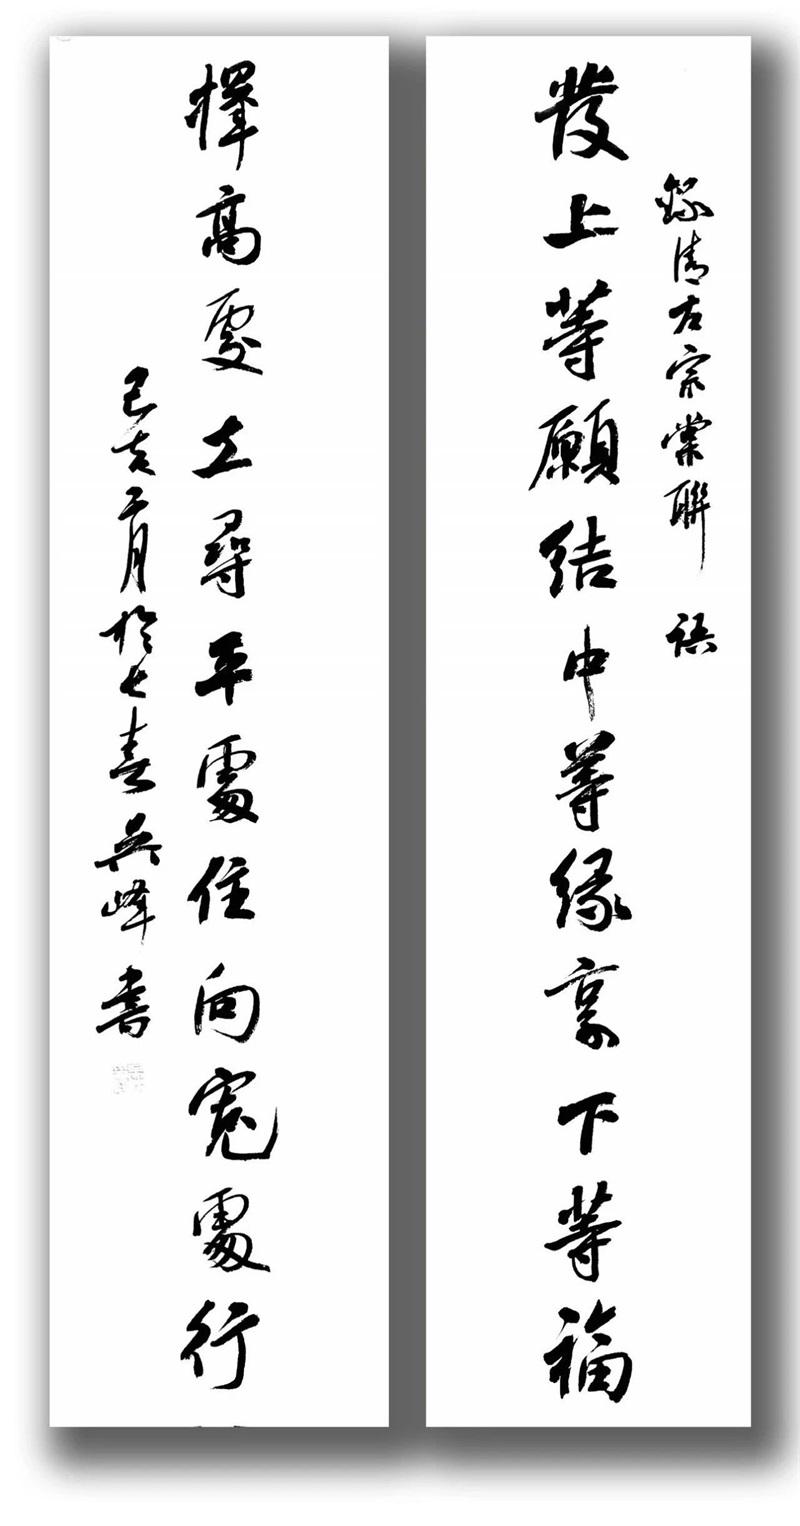 錄清左宗棠聯語
發上等願結中等緣享下等福
擇高處立尋平處住向寬處行
己亥二月於七喜吳峰書